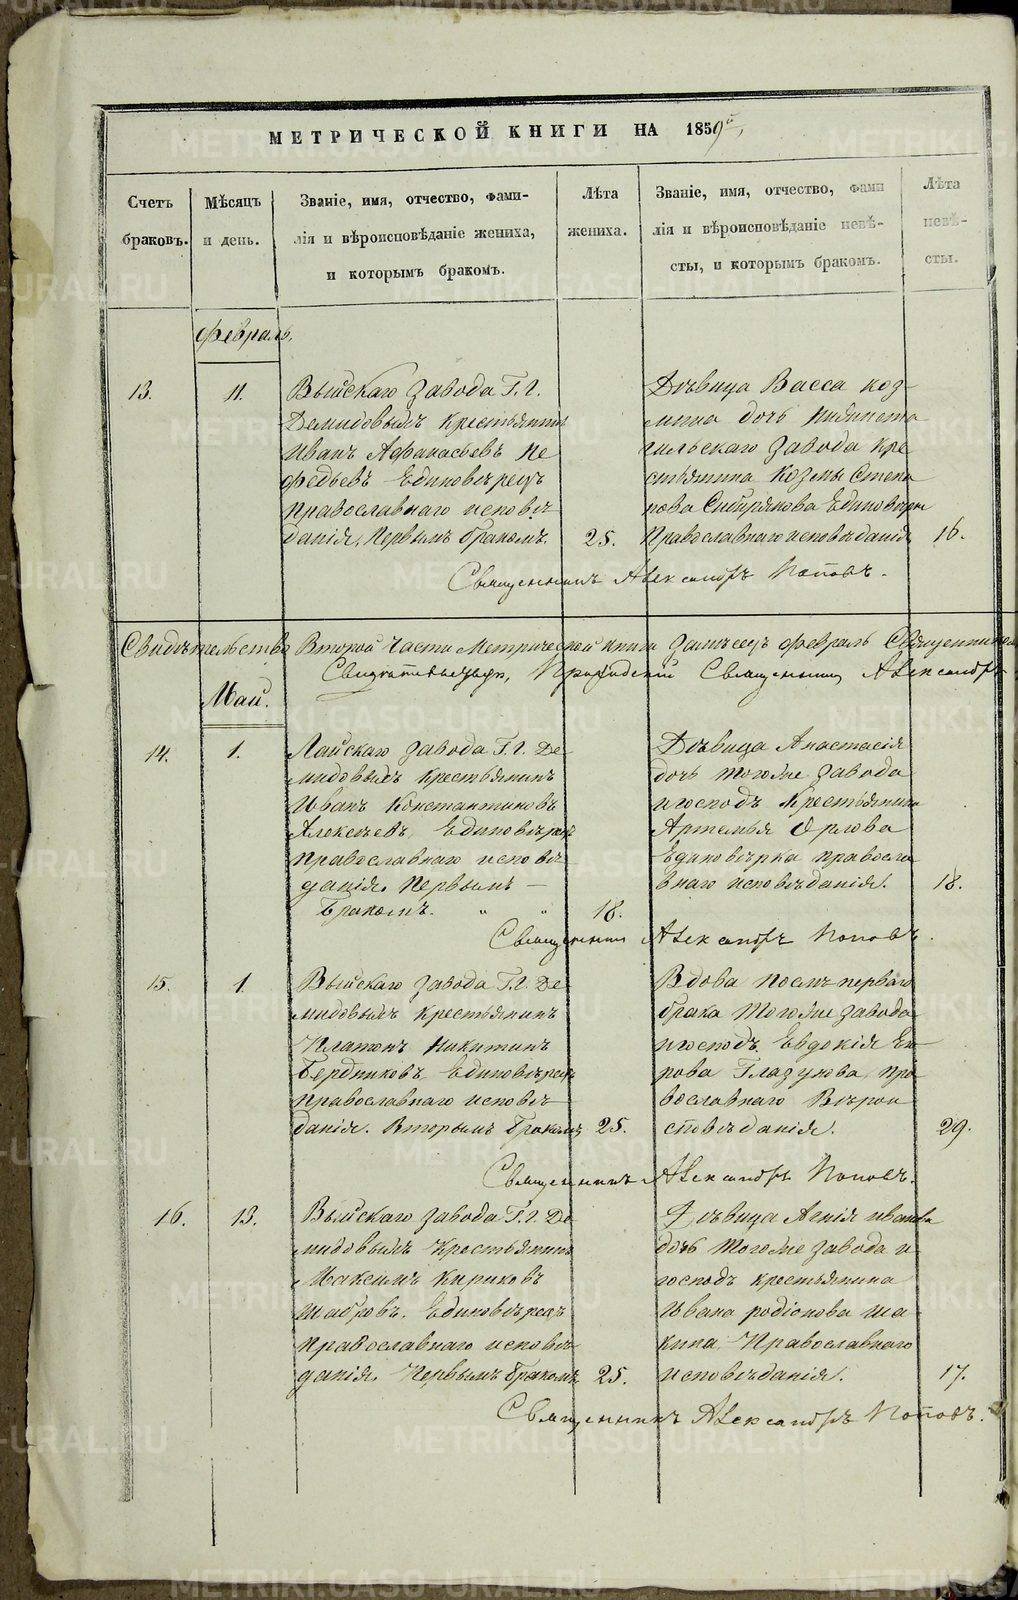 МЕТРИЧЕСКОЙ КНИГИ НА 1859й,
Счетъ браковъ.
Мѣсяцъ и день.
Званіе, имя, отчество, фами-
лія и вѣроисповѣданіе жениха,
и которымъ бракомъ.
Лѣта
жениха.
Званіе, имя, отчество, фами
лія и вѣроисповѣданіе невѣ-
сты, и которымъ бракомъ.
Лѣта
невѣ-
сты.
Февраль,
13.
11.
Выйскаго завода Г.Г.
Демидовыхъ крестьянинъ
Иванъ Афанасьевъ Не
федьевъ Единовѣрецъ
православнаго исповѣ
данія, Первымъ бракомъ.
25.
Дѣвица Васса Коз-
мина дочь Нижнета
гильскаго завода кре
стьянина Козмы Степа
нова Сибирякова Единовѣрки
Православнаго исповѣданія
16.
Священникъ Александръ Поповъ.
Свидѣтельство Второй Части Метрической книги за мѣсяцъ Февраль Священникомъ
Священникъ Александръ
Май.
14.
1.
Лайскаго завода Г.Г. Де
мидовыхъ крестьянинъ
Иванъ Константиновъ
Алексѣевъ, Единовѣрецъ
православнаго исповѣ
данія. Первымъ —
Бракомъ. " "
18.
Дѣвица Анастасія
дочь того же завода
и господъ крестьянина
Артемья Орлова
Единовѣрка правосла
внаго исповѣданія.
18.
Священникъ Александръ Поповъ.
15.
1.
Выйскаго завода Г.Г. Де
мидовыхъ крестьянинъ
Платонъ Никитинъ
Бердниковъ Единовѣрецъ
православнаго исповѣ
данія. Вторымъ бракомъ,
25.
Вдова послѣ перваго
брака того же завода
и господъ Евдокія Его
рова Глазунова, пра
вославнаго Вѣрои
сповѣданія.
29.
Священникъ Александръ Поповъ.
16.
13.
Выйскаго завода Г.Г. Де
мидовыхъ крестьянинъ
Максимъ Кириковъ
Шабровъ. Единовѣрецъ
православнаго исповѣ
данія. Первымъ бракомъ
25.
Дѣвица Агнія Иванова
дочь того же завода и
господъ крестьянина
Ивана Родіонова Ша
кина, Православнаго
исповѣданія.
17.
Священникъ Александръ Поповъ.
METRIKI.GASO-URAL.RU